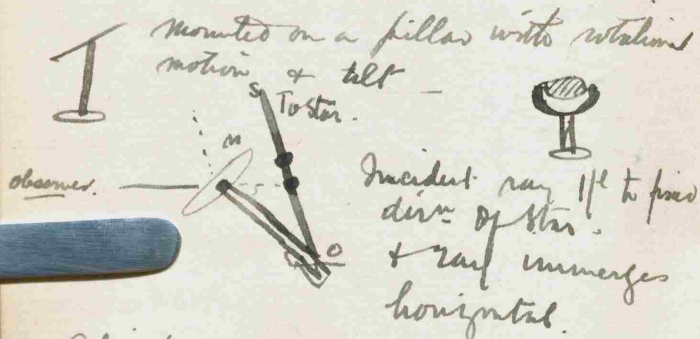 mounted on a pillar with rotational
motion & tilt
S
To star.
n
observer.
O
Incident ray ||el to fixed
dirn of star.
& ray immerges
horizontal.